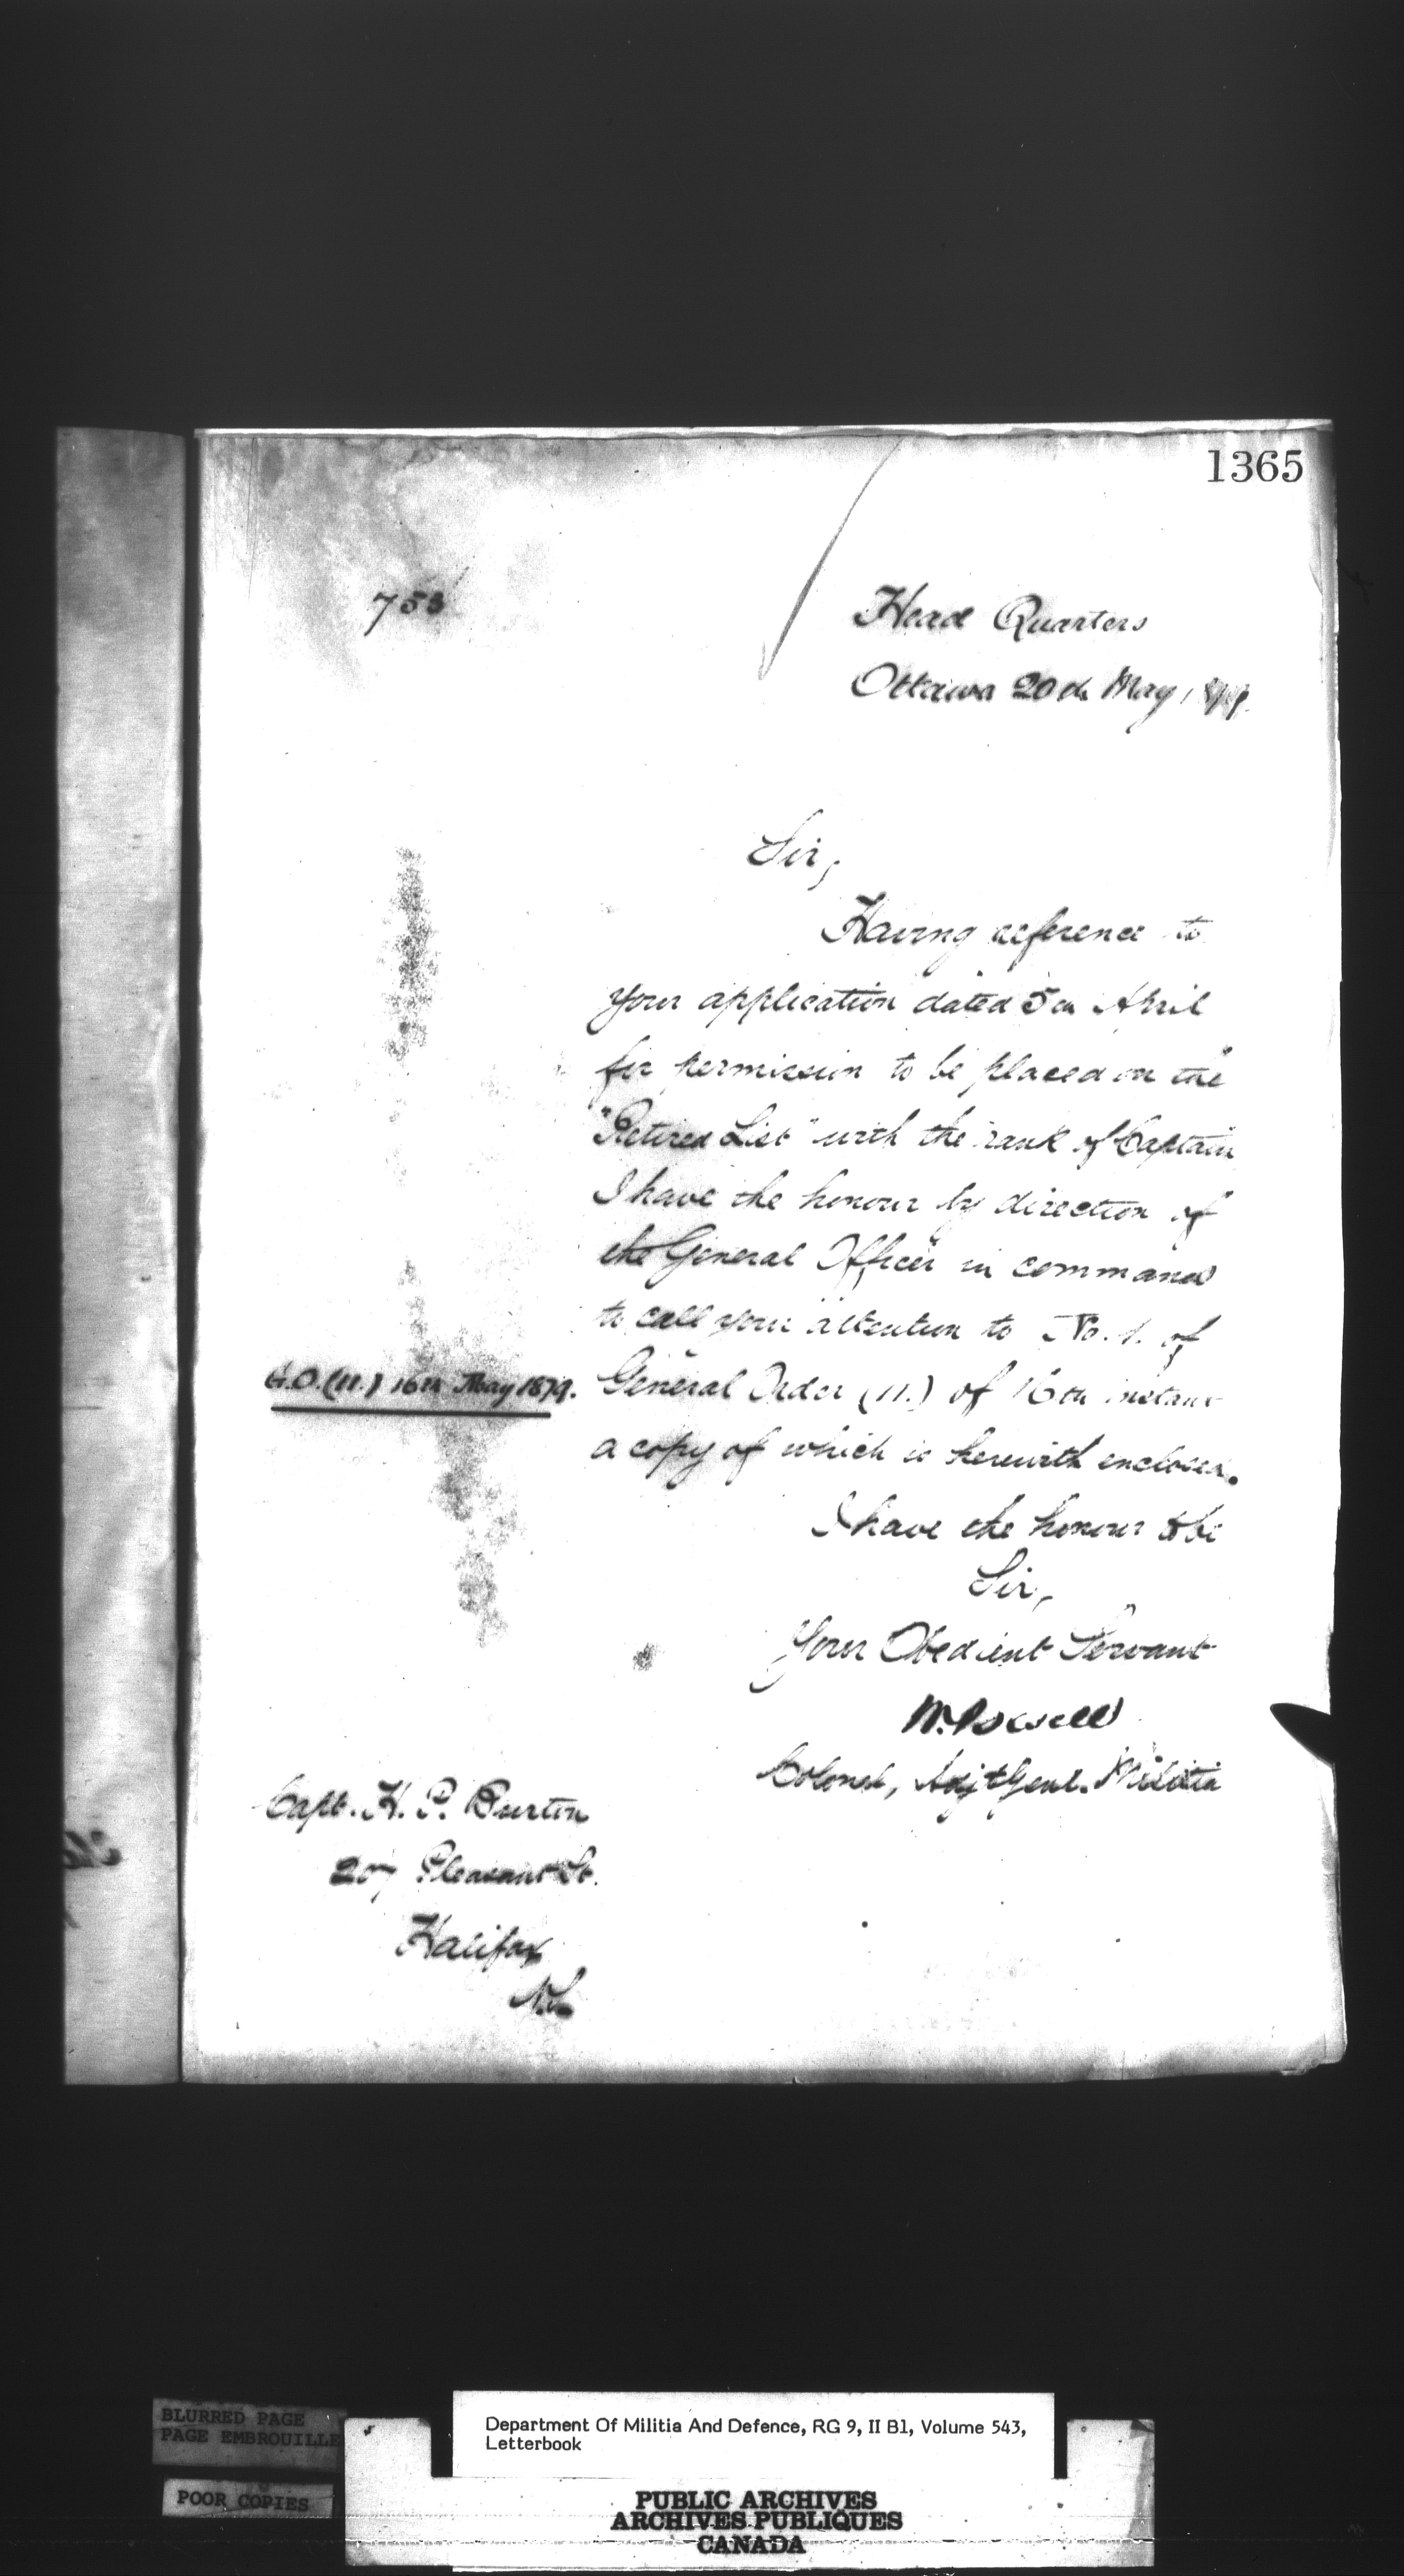 1365
753
Head Quarters
Ottawa 20th May, 1879.
Sir,
Having reference to
your application dated 5th April
for permission to be placed on the
"Retired List" with the rank of Captain
I have the honour by direction of
the General Officer in command
to call your attention to No. 1. of
G.O. (11.) 16th May 1879.
General Order (11.) of 16th instant
a copy of which is herewith enclosed.
I have the honour to be
Sir,
Your Obedient Servant
W. Powell
Colonel, Adjt Genl. Militia
Capt. H. P. Burton
207 Pleasant St.
Halifax
N.S.
BLURRED PAGE
PAGE EMBROUILLE
POOR COPIES
Department Of Militia And Defence, RG 9, II B1, Volume 543,
Letterbook
PUBLIC ARCHIVES
ARCHIVES PUBLIQUES
CANADA